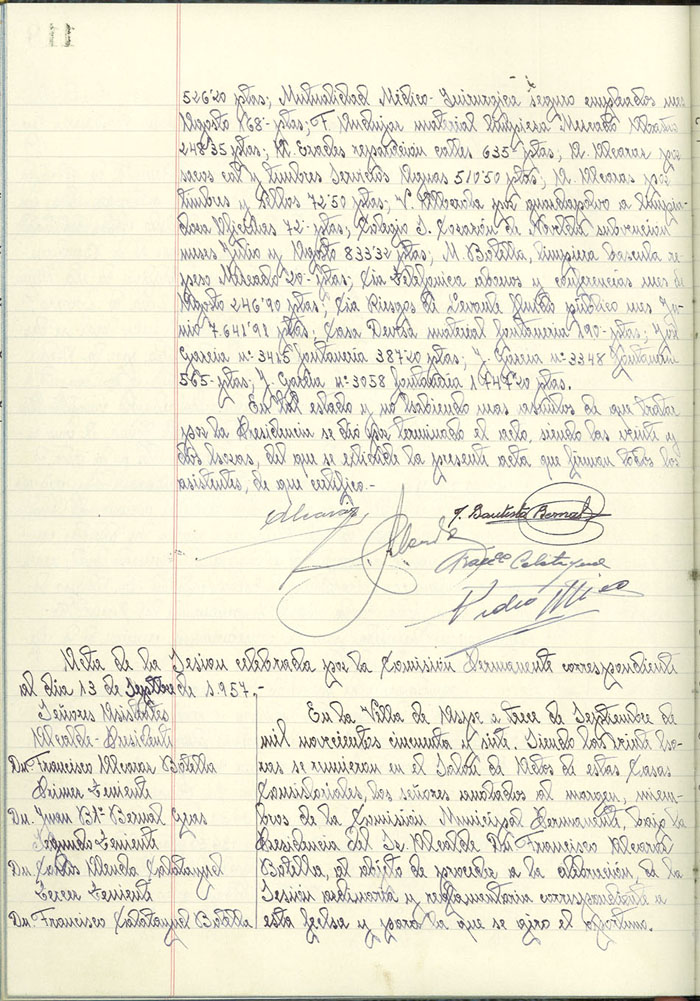 11
526'20 ptas; Mutualidad Médico-Quirurgica seguro empleados mes
Agosto 168'- ptas; F. material limpiesa Mercado Abastos
248'35 ptas; A. reparación calles 635 ptas; A. Alcaras por
sacos cal y timbres Servicios Aguas 510'50 ptas; A. Alcaras por
timbres y 72'50 ptas; V. por guardapolvo a limpia-
dora 72'- ptas; Colegio S. de Novelda subvención
meses Julio y Agosto 833'32 ptas; M. Botella, limpiera bascula re-
peso Mercado 20'- ptas; Cia Telefonica abonos y conferencias mes de
Agosto 246'90 ptas; Cia Riegos de Levante fluido público mes Ju-
nio 7.641'91 ptas; Casa Devesa material fontaneria 190- ptas; José
Garcia nº 3415 fontaneria 387'20 ptas; J. Garcia nº 3348 fontaneria
565- ptas; J. Garcia nº 3058 fontaneria 1.747'20 ptas.
En tal estado y no habiendo mas asuntos de que tratar
por la Presidencia se dió por terminado el acto, siendo las veinte y
dos horas, del que se extiende la presente acta que firman todos los
asistentes, de que certifico.-
Alcaraz
J. Bautista Bernal
Franco Calatayud
Pedro Mico
Acta de la Sesion celebrada por la Comisión Permanente correspondiente
al dia 13 de Septbre de 1.957,-
Señores Asistentes
Alcalde-Presidente
Dn. Francisco Alcaras Botella
Primer Teniente
Dn. Juan Bta. Bernal
Segundo-Teniente
Dn. Carlos Calatayud
Tercer Teniente
Dn. Francisco Calatayud Botella
En la Villa de Aspe a trece de Septiembre de
mil novecientos cincuenta y siete. Siendo las veinte ho-
ras se reunieron en el Salón de Actos de estas Casas
Consistoriales, los señores anotados al margen, miem-
bros de la Comisión Municipal Permanente, bajo la
Presidencia del Sr. Alcalde Dn. Francisco Alcaras
Botella, al objeto de proceder a la celebración, de la
Sesión ordinaria y reglamentaria correspondiente a
esta fecha y para la que se